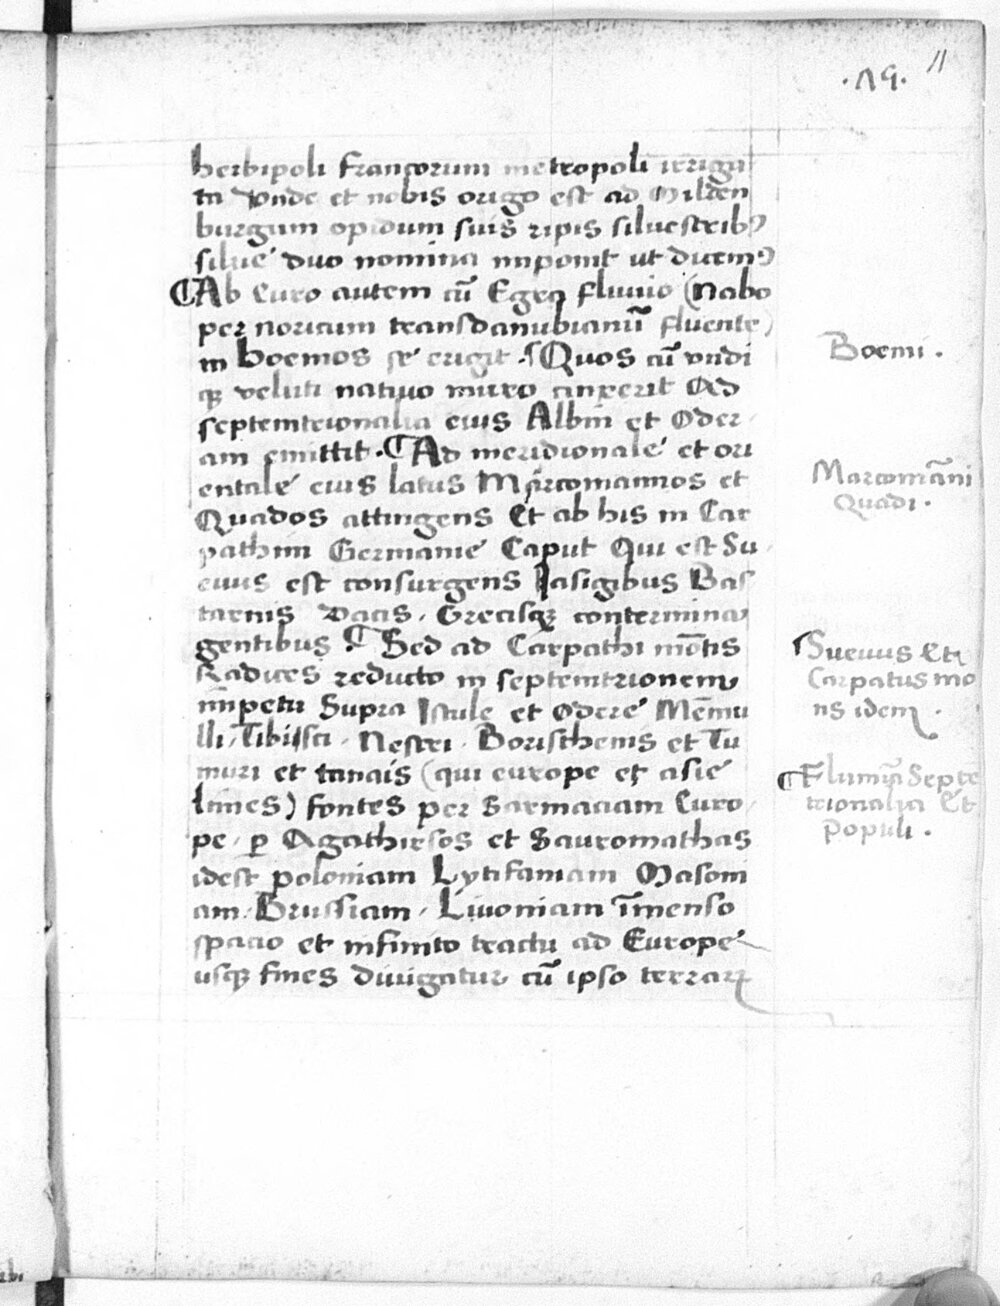 ·19· 11
herbipoli francorum metropoli irriga
ta Vnde et nobis origo est ad Milten
burgum opidum suis ripis siluestribꝰ
siluę duo nomina imponit ut dicimꝰ
¶Ab Euro autem cū Egra fluuio (Nabo
per noricum transdanubianū fluente)
in boemos se erigit · Quos cū vndi
qꝫ veluti natiuo muro cinxerit Ad
septemtrionalia eius Albim et Oder
am emittit · ¶Ad meridionalē et ori
entalē eius latus Marcomannos et
Quados attingens Et ab his in Car
pathim Germanię Caput Qui est Su
euus est consurgens Iasigibus Bas
tarnis Dacis, Grecisqꝫ contermina
gentibus ¶ Sed ad Carpathi mōtis
Radices reducto in septemtrionem
impetu Supra Istulę et Oderę Mēmi
lli, Tibisci, Nestri, Boristhenis et Tu
muri et tanais (qui europe et asię
limes) fontes per Sarmaciam Euro
pe, ꝑ Agathirsos et Sauromathas
idest poloniam Lytifaniam Masoni
am, Brussiam, Liuoniam īmenso
spacio et infinito tractu ad Europę
usqꝫ fines diuigatur cū ipso terrarꝝ
Boemi ·
Marcomāni
Quadi ·
Sueuus Et
Carpatus mo
ns idem ·
¶Flumīa Septe
trionalia Et
Populi ·